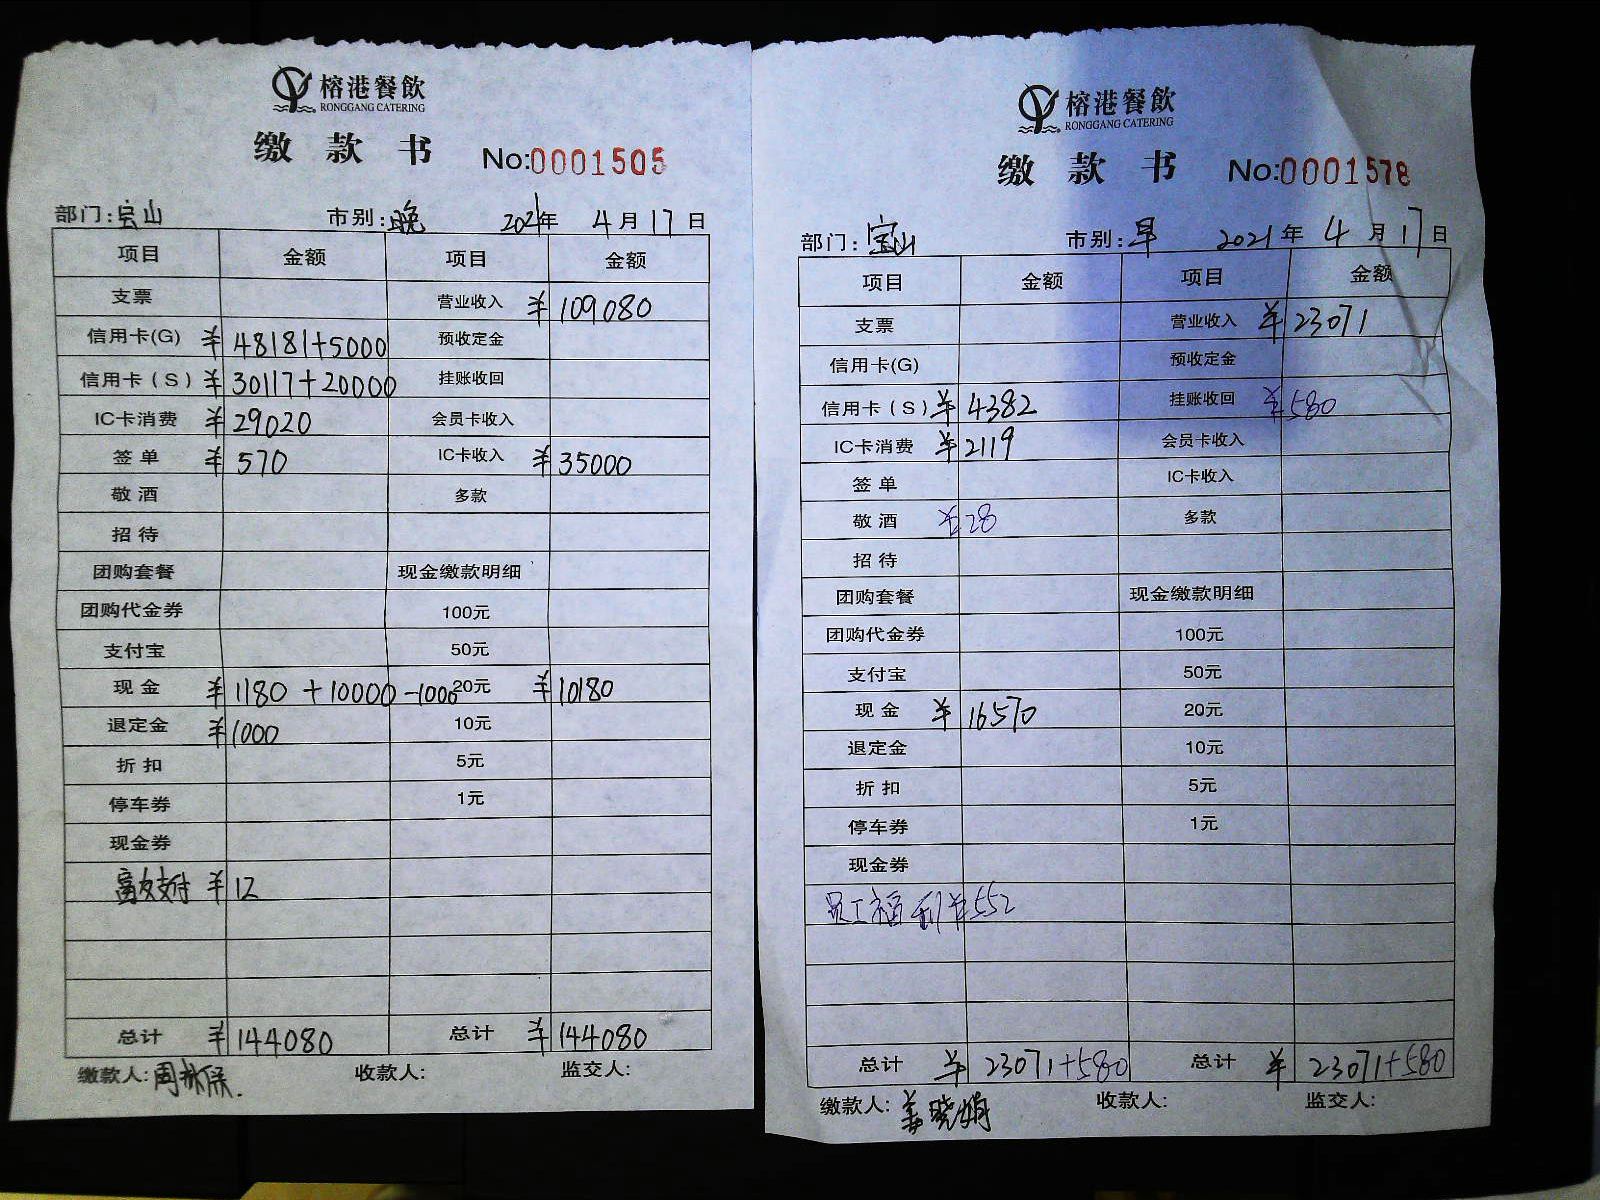 榕港餐飲
RONGGANG CATERING
缴款书 No:0001505
部门:宝山 市别:晚 2021年 4月17日
项目 金额 项目 金额
支票 营业收入 ¥109080
信用卡(G) ¥48181+5000 预收定金
信用卡(S) ¥30117+20000 挂账收回
IC卡消费 ¥29020 会员卡收入
签单 ¥570 IC卡收入 ¥35000
敬酒 多款
招待
团购套餐 现金缴款明细
团购代金券 100元
支付宝 50元
现金 ¥1180+10000-1000 20元 ¥10180
退定金 ¥1000 10元
折扣 5元
停车券 1元
现金券
支付 ¥12
总计 ¥144080 总计 ¥144080
缴款人:周 保. 收款人: 监交人:
榕港餐飲
RONGGANG CATERING
缴款书 No:0001578
部门:宝山 市别:早 2021年 4月17日
项目 金额 项目 金额
支票 营业收入 ¥23071
信用卡(G) 预收定金
信用卡(S) ¥4382 挂账收回 ¥580
IC卡消费 ¥2119 会员卡收入
签单 IC卡收入
敬酒 ¥28 多款
招待
团购套餐 现金缴款明细
团购代金券 100元
支付宝 50元
现金 ¥16570 20元
退定金 10元
折扣 5元
停车券 1元
现金券
员工福利¥552
总计 ¥23071+580 总计 ¥23071+580
缴款人:姜晓娟 收款人: 监交人: